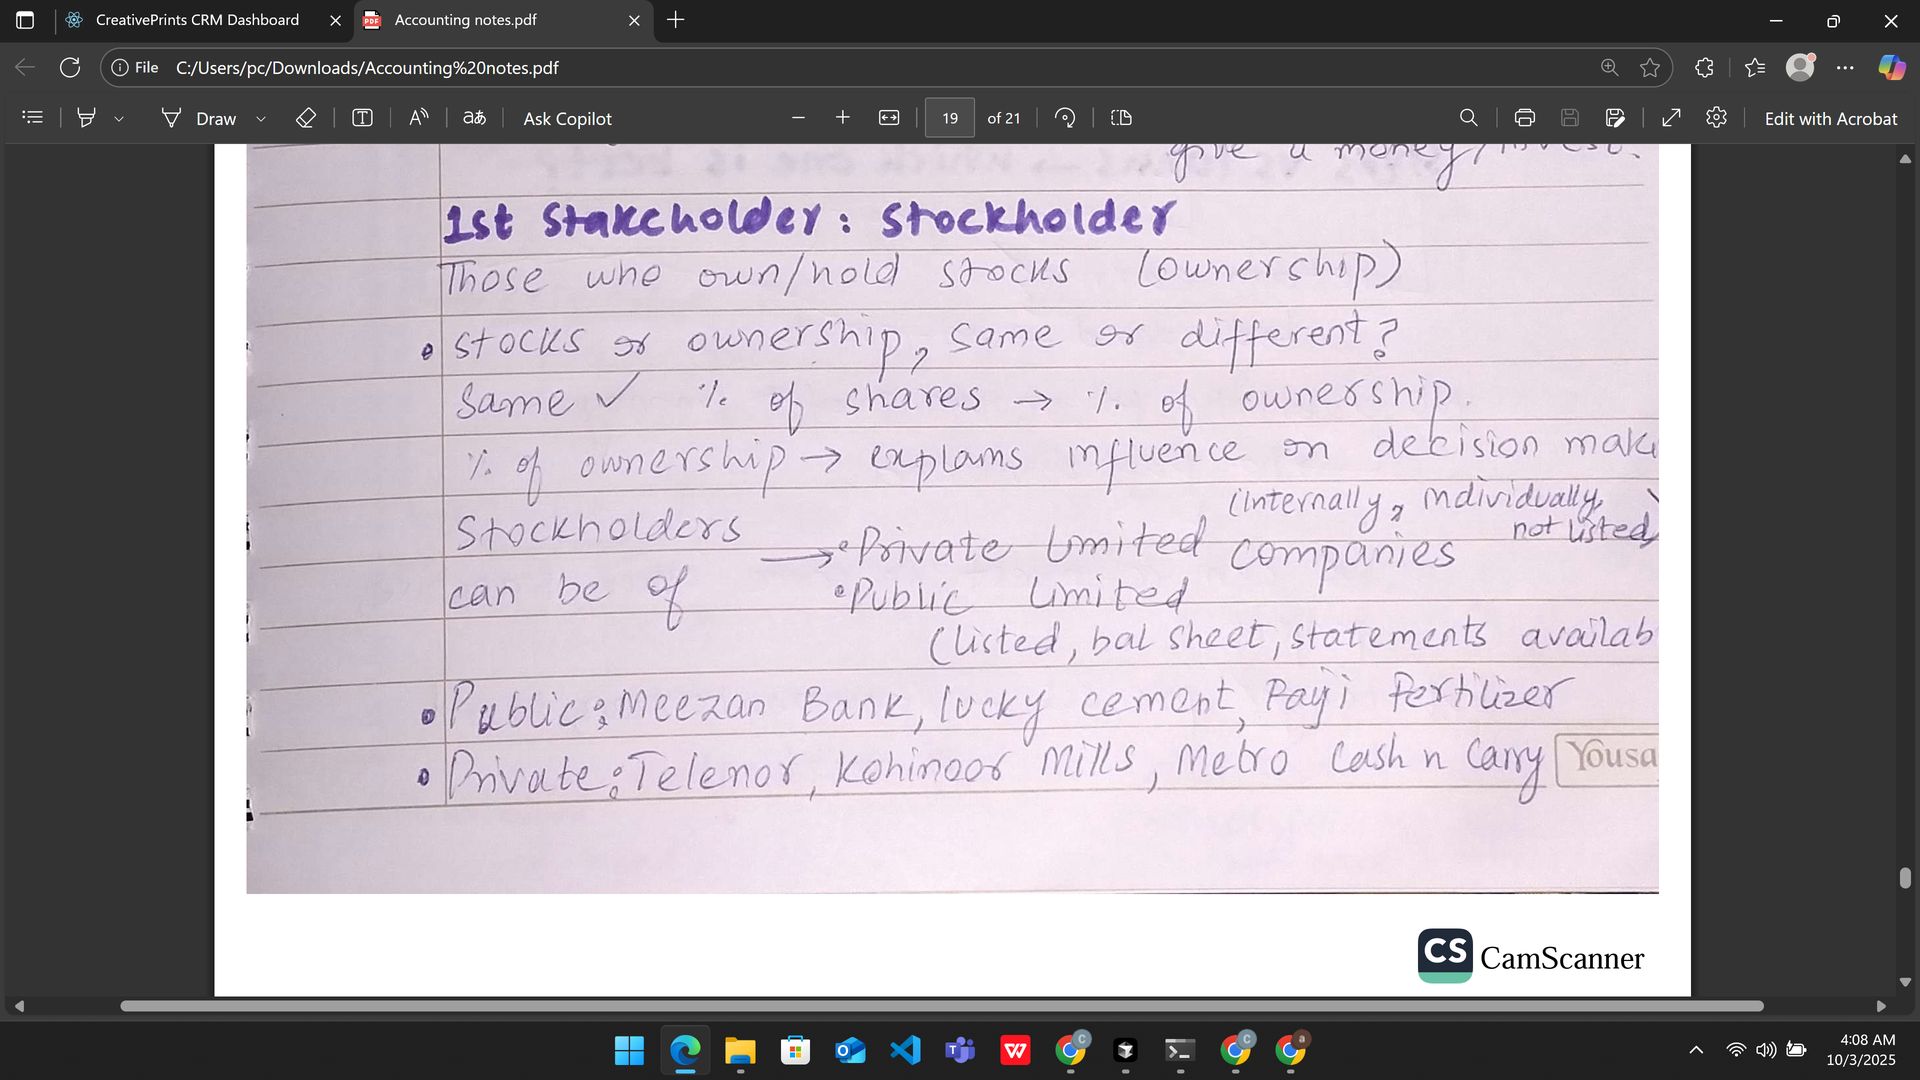 CreativePrints CRM Dashboard
Accounting notes.pdf
File C:/Users/pc/Downloads/Accounting%20notes.pdf
Draw
Ask Copilot
19 of 21
Edit with Acrobat
give a money/invest.
1st Stakeholder: Stockholder
Those who own/hold stocks (ownership)
• stocks or ownership, same or different?
Same ✓ % of shares → % of ownership.
% of ownership → explains influence on decision mak
(internally, individually,
not listed)
Stockholders → • Private Limited companies
can be of • Public Limited
(listed, bal sheet, statements availab
• Public: Meezan Bank, lucky cement, Fauji Fertilizer
• Private: Telenor, Kohinoor Mills, Metro Cash n Carry
Yousa
CS CamScanner
4:08 AM
10/3/2025